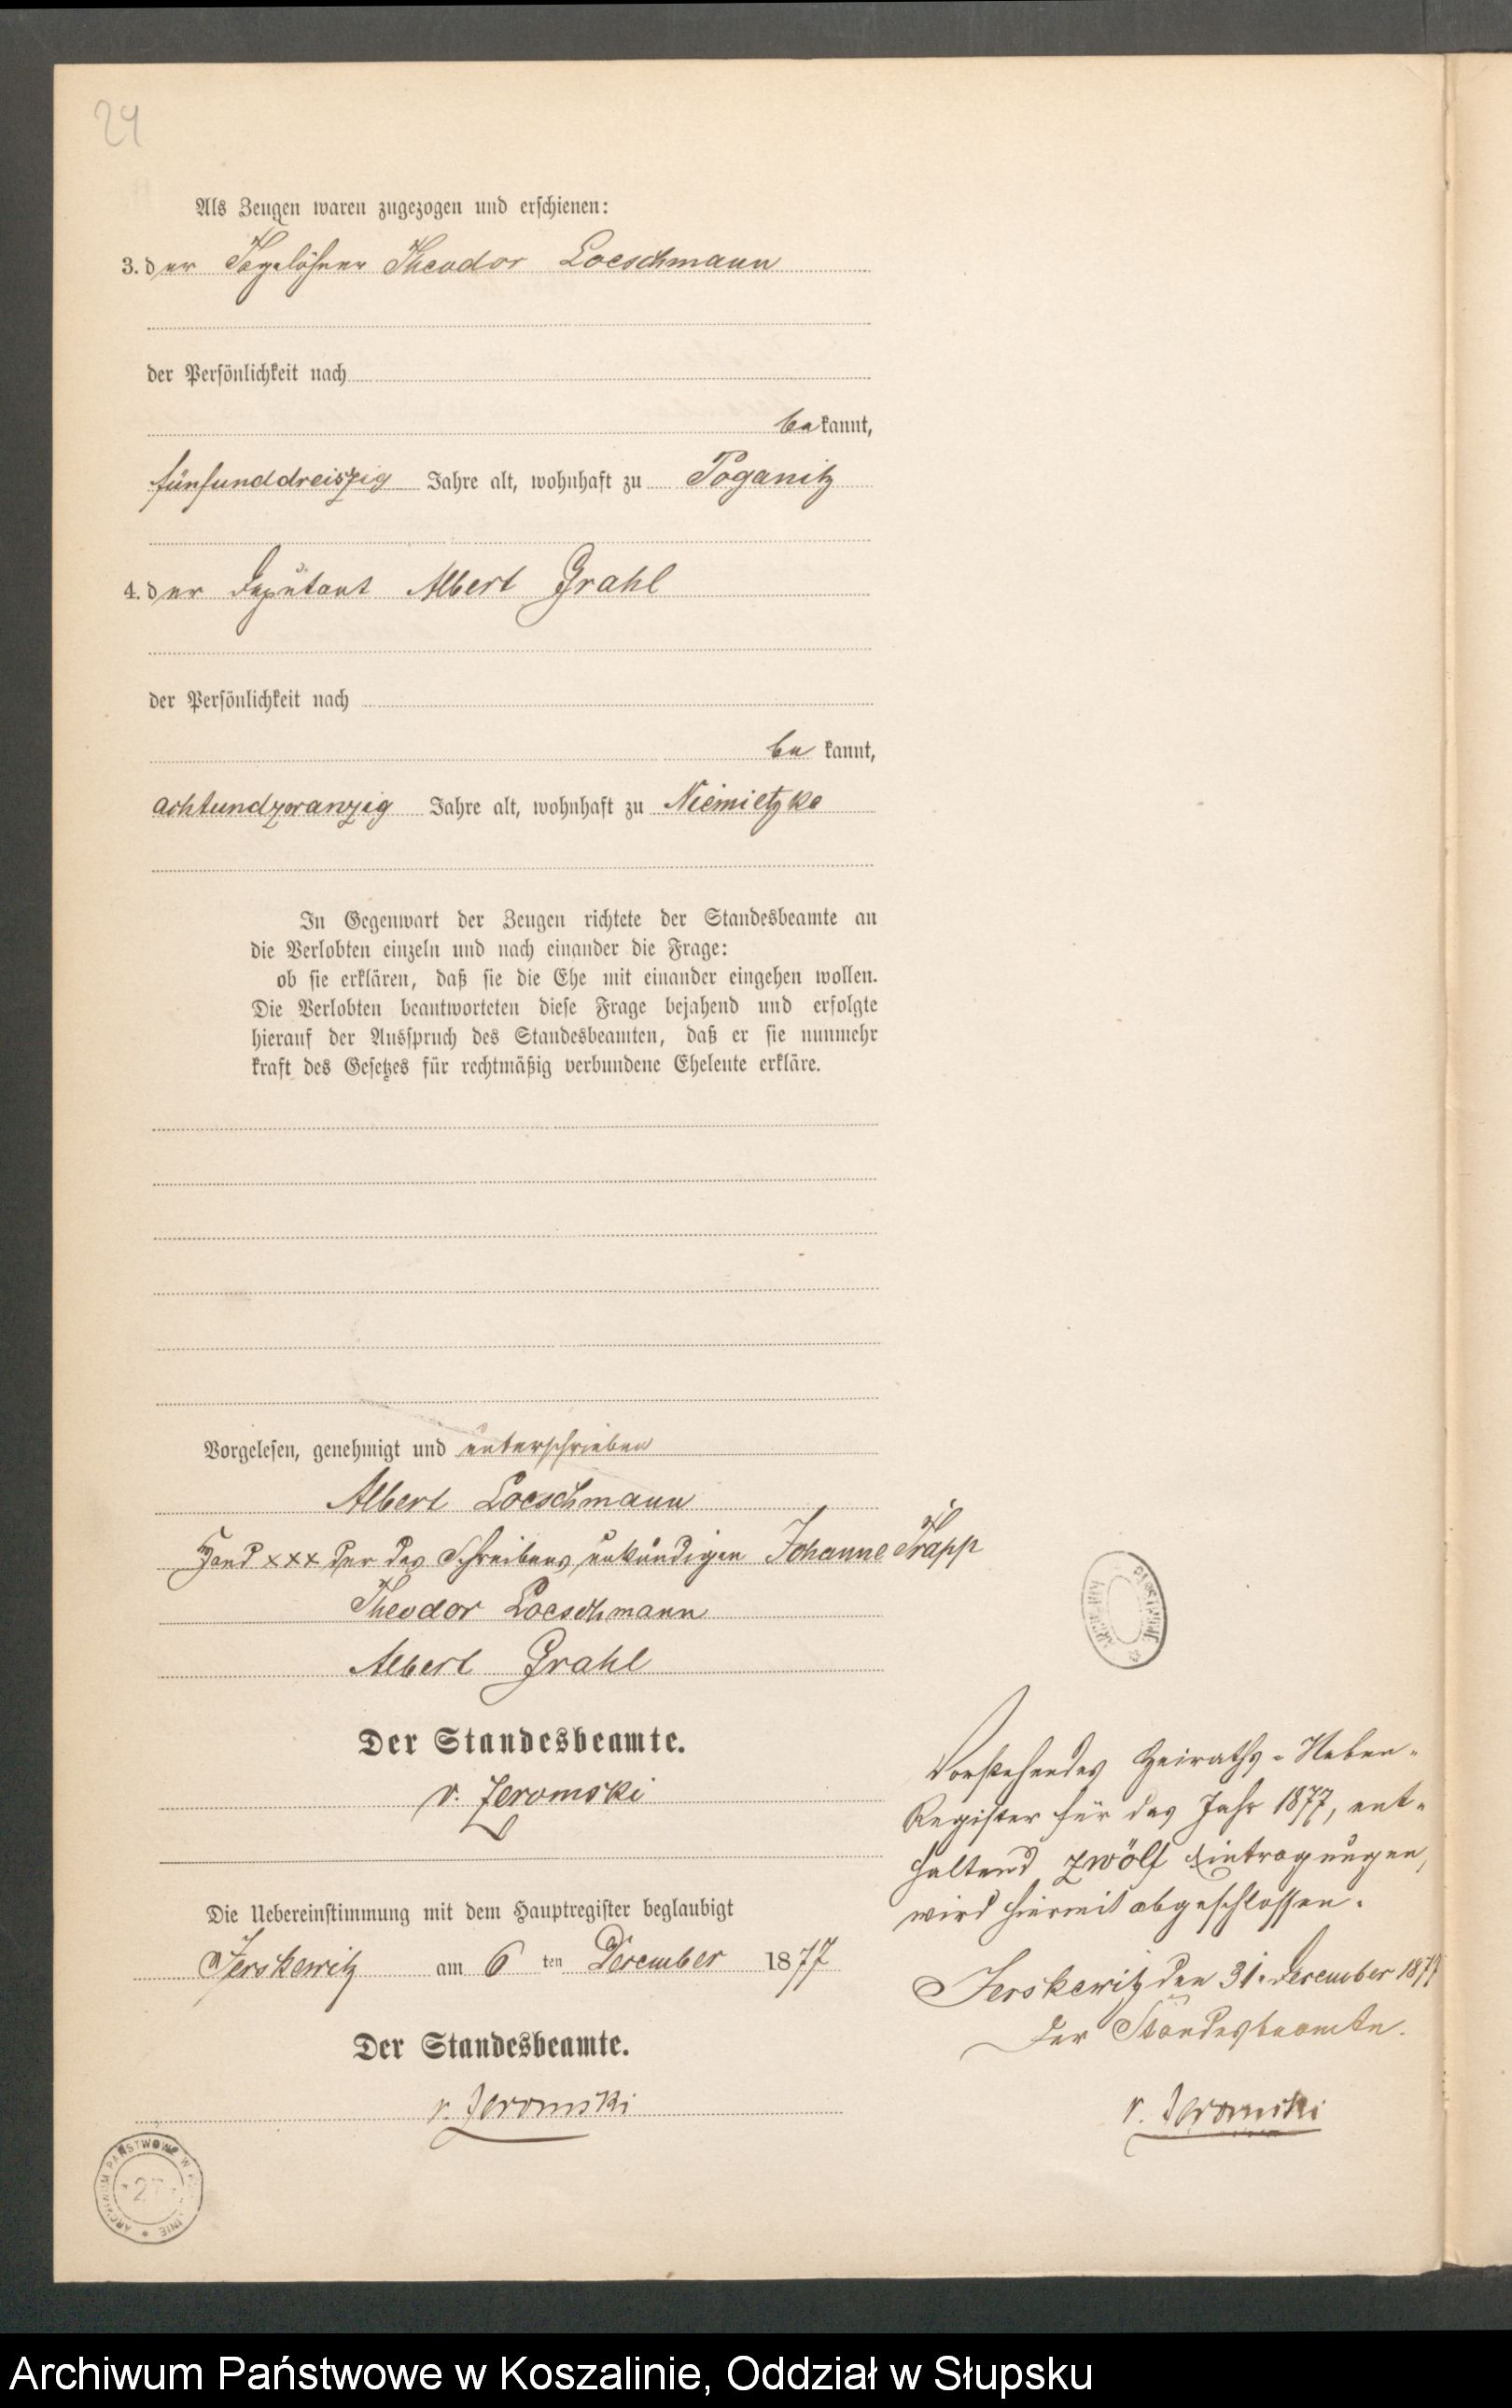 24
Als Zeugen waren zugezogen und erschienen:
3. der Tagelöhner Theodor Loeschmann
der Persönlichkeit nach
bekannt,
fünfunddreiszig Jahre alt, wohnhaft zu Poganitz
4. der Deputant Albert Grahl
der Persönlichkeit nach
be kannt,
achtundzwanzig Jahre alt, wohnhaft zu Niemietzke
In Gegenwart der Zeugen richtete der Standesbeamte an
die Verlobten einzeln und nach einander die Frage:
ob sie erklären, daß sie die Ehe mit einander eingehen wollen.
Die Verlobten beantworteten diese Frage bejahend und erfolgte
hierauf der Ausspruch des Standesbeamten, daß er sie nunmehr
kraft des Gesetzes für rechtmäßig verbundene Eheleute erkläre.
Vorgelesen, genehmigt und unterschrieben
Albert Loeschmann
Hand xxx der des Schreibens unkundigen Johanne Trapp
Theodor Loeschmann
Albert Grahl
Der Standesbeamte.
v. Jeromski
Die Uebereinstimmung mit dem Hauptregister beglaubigt
Jerskewitz am 6 ten December 1877
Der Standesbeamte.
v. Jeromski
Vorstehendes Heiraths-Neben-
Register für das Jahr 1877, ent-
haltend zwölf Eintragungen,
wird hiermit abgeschlossen.
Jerskewitz den 31. December 1877
Der Standesbeamte.
v. Jeromski
ARCHIWUM PAŃSTWOWE W
Archiwum Państwowe w Koszalinie, Oddział w Słupsku